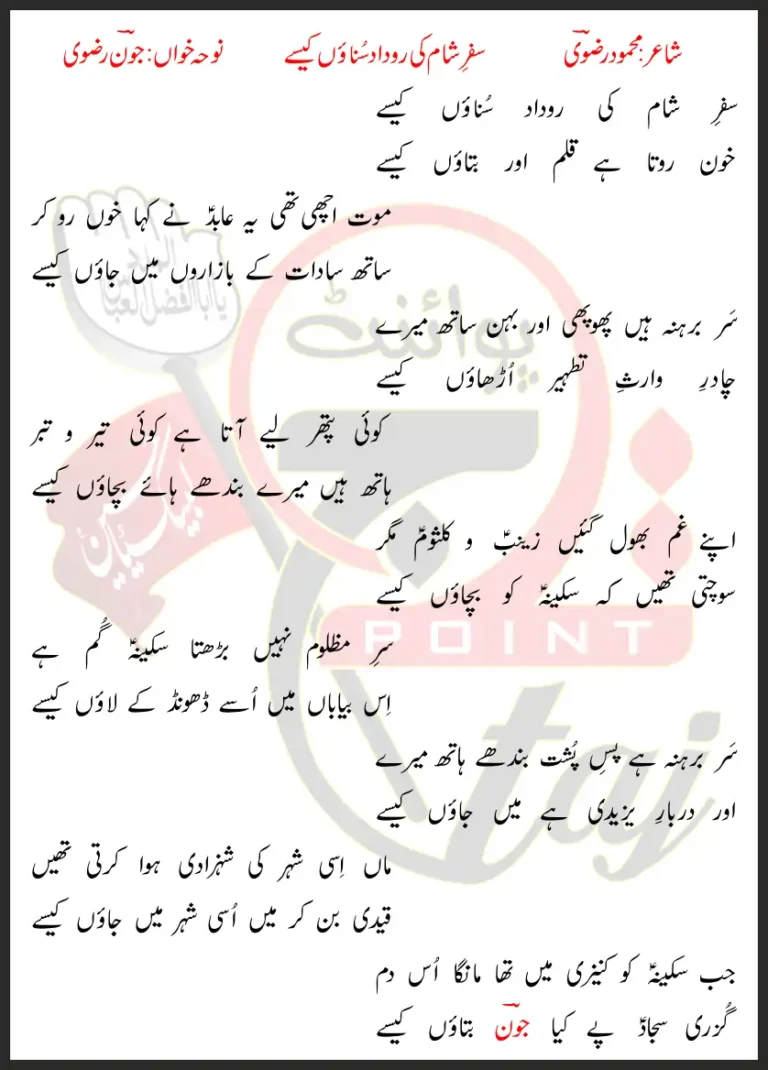 شاعر: محمود رضویؔ سفرِ شام کی روداد سُناؤں کیسے نوحہ خواں: جونؔ رضوی
سفرِ شام کی روداد سُناؤں کیسے
خون روتا ہے قلم اور بتاؤں کیسے
موت اچھی تھی یہ عابدؑ نے کہا خوں رو کر
ساتھ سادات کے بازاروں میں جاؤں کیسے
سَر برہنہ ہیں پھوپھی اور بہن ساتھ میرے
چادرِ وارثِ تطہیر اُڑھاؤں کیسے
کوئی پتھر لیے آتا ہے کوئی تیر و تبر
ہاتھ ہیں میرے بندھے ہائے بچاؤں کیسے
اپنے غم بھول گئیں زینبؑ و کلثومؑ مگر
سوچتی تھیں کہ سکینہؑ کو بچاؤں کیسے
سرِ مظلوم نہیں بڑھتا سکینہؑ گُم ہے
اِس بیاباں میں اُسے ڈھونڈ کے لاؤں کیسے
سَر برہنہ ہے پسِ پُشت بندھے ہاتھ میرے
اور دربارِ یزیدی ہے میں جاؤں کیسے
ماں اِسی شہر کی شہزادی ہوا کرتی تھیں
قیدی بن کر میں اُسی شہر میں جاؤں کیسے
جب سکینہؑ کو کنیزی میں تھا مانگا اُس دم
گُزری سجادؑ پے کیا جونؔ بتاؤں کیسے
پوائنٹ
POINT
taj
لبیک یا حسینؑ
یا ابالفضل العباس